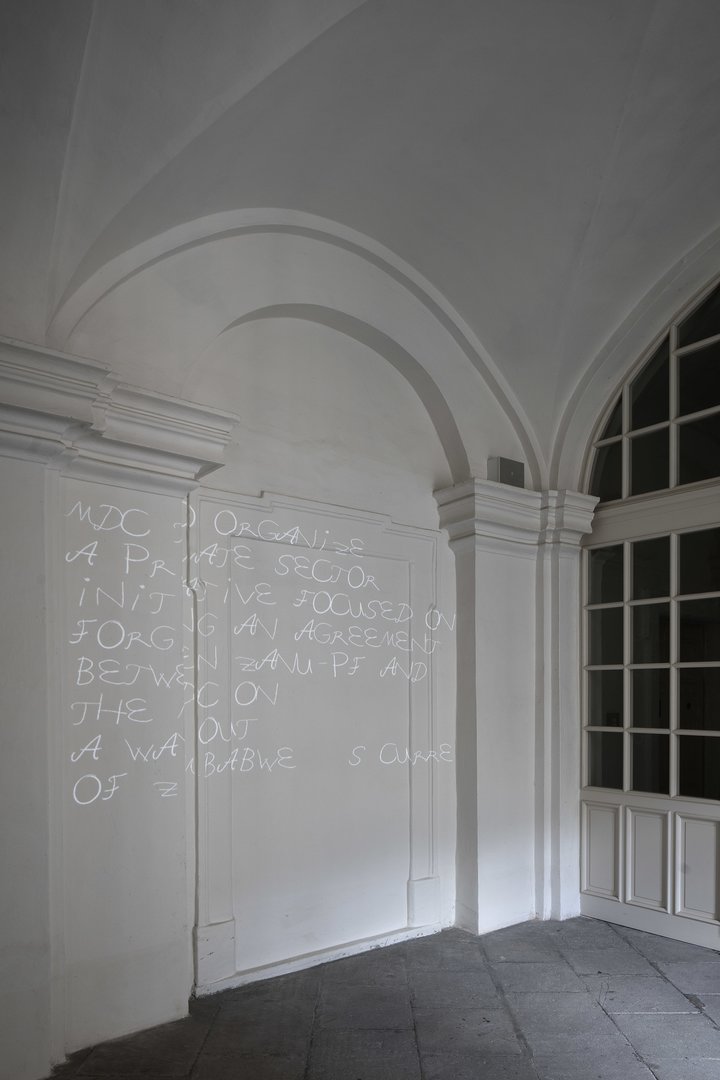 MDC ORGANIZE
A PRIVATE SECTOR
INITIATIVE FOCUSED ON
FORGING AN AGREEMENT
BETWEEN ZANU-PF AND
THE ON
A WAY OUT
OF ZIMBABWE S CURRE